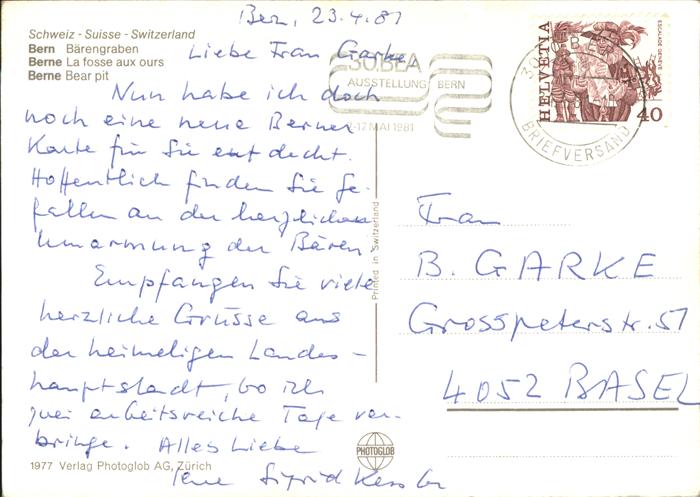 Bern, 23.4.81
Schweiz - Suisse - Switzerland
Bern Bärengraben
Berne La fosse aux ours
Berne Bear pit
Liebe Frau Garke,
Nun habe ich doch
noch eine neue Berner
Karte für Sie entdeckt.
Hoffentlich finden Sie Ge-
fallen an der herzlichen
Umarmung der Bären.
Empfangen Sie viele
herzliche Grüsse aus
der heimeligen Landes-
hauptstadt, wo ich
zwei arbeitsreiche Tage ver-
bringe. Alles Liebe
Ihre Sigrid Kessler
1977 Verlag Photoglob AG, Zürich
PHOTOGLOB
Printed in Switzerland
30. BEA
AUSSTELLUNG BERN
-17 MAI 1981
BRIEFVERSAND
HELVETIA
ESCALADE GENÈVE
40
Frau
B. GARKE
Grosspeterstr. 51
4052 BASEL